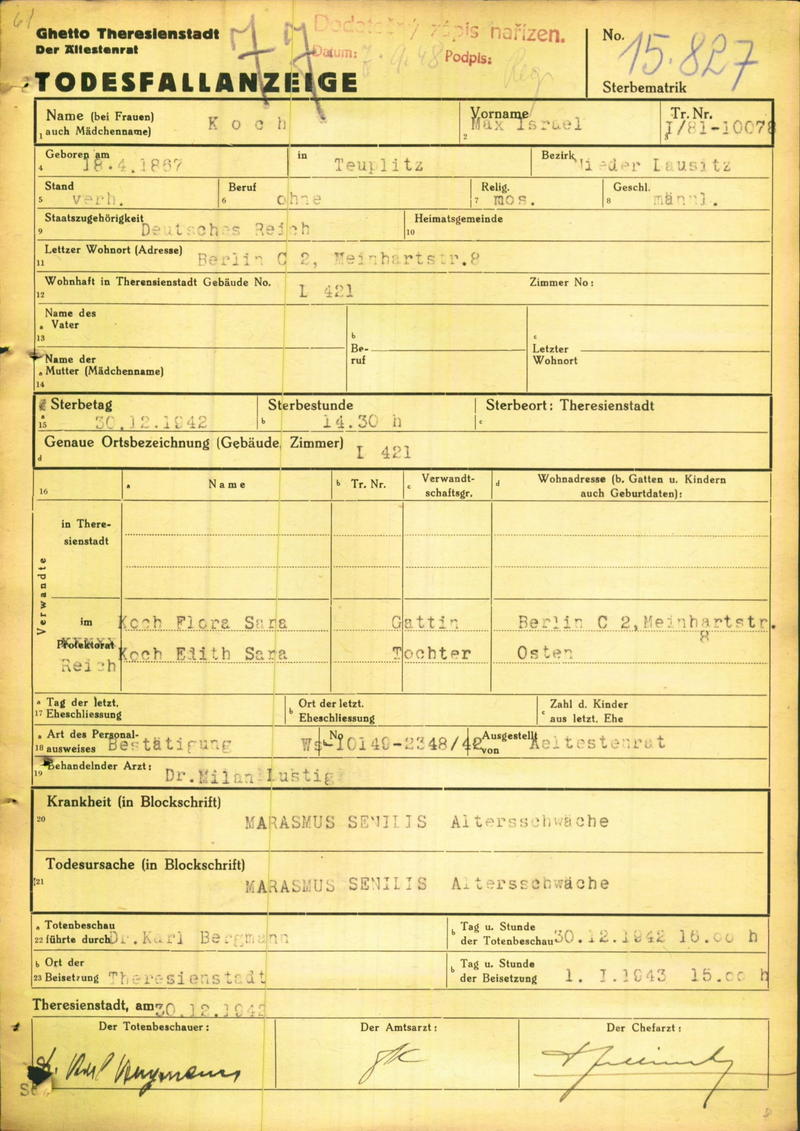 61
Ghetto Theresienstadt
Der Ältestenrat
Dodatečný zápis nařízen.
Datum: 7. 9. 48 Podpis:
TODESFALLANZEIGE
No. 15.827
Sterbematrik
Name (bei Frauen) Koch Vorname Max Israel Tr. Nr.
1 auch Mädchenname) 2 3 I/81-10078
Geboren am 18.4.1867 in Teuplitz Bezirk Nieder Lausitz
4
Stand Beruf Relig. Geschl.
5 verh. 6 ohne 7 mos. 8 männl.
Staatszugehörigkeit Heimatsgemeinde
9 Deutsches Reich 10
Lettzer Wohnort (Adresse)
11 Berlin C 2, Meinhartstr.8
Wohnhaft in Therensienstadt Gebäude No. L 421 Zimmer No:
12
Name des
a Vater
13
b Beruf
c Letzter Wohnort
Name der
a Mutter (Mädchenname)
14
Sterbetag Sterbestunde Sterbeort: Theresienstadt
a 15 30.12.1942 b 14.30 h c
Genaue Ortsbezeichnung (Gebäude, Zimmer) L 421
d
16 a Name b Tr. Nr. c Verwandtschaftsgr. d Wohnadresse (b. Gatten u. Kindern auch Geburtdaten):
Verwandte
in Theresienstadt
im Koch Flora Sara Gattin Berlin C 2,Meinhartstr.
8
Protektorat
Reich Koch Edith Sara Tochter Osten
a Tag der letzt. b Ort der letzt. c Zahl d. Kinder
17 Eheschliessung Eheschliessung aus letzt. Ehe
a Art des Personal- b No Ausgestellt
18 ausweises Bestätigung 10140-2348/42 von Aeltestenrat
Behandelnder Arzt:
19 Dr.Milan Lustig
Krankheit (in Blockschrift)
20 MARASMUS SENILIS Altersschwäche
Todesursache (in Blockschrift)
21 MARASMUS SENILIS Altersschwäche
a Totenbeschau b Tag u. Stunde
22 führte durch Dr.Karl Bergmann der Totenbeschau 30.12.1942 16.00 h
b Ort der b Tag u. Stunde
23 Beisetzung Theresienstadt der Beisetzung 1. I.1943 15.00 h
Theresienstadt, am 30.12.1942
Der Totenbeschauer: Der Amtsarzt: Der Chefarzt:
Dr. Karl Bergmann